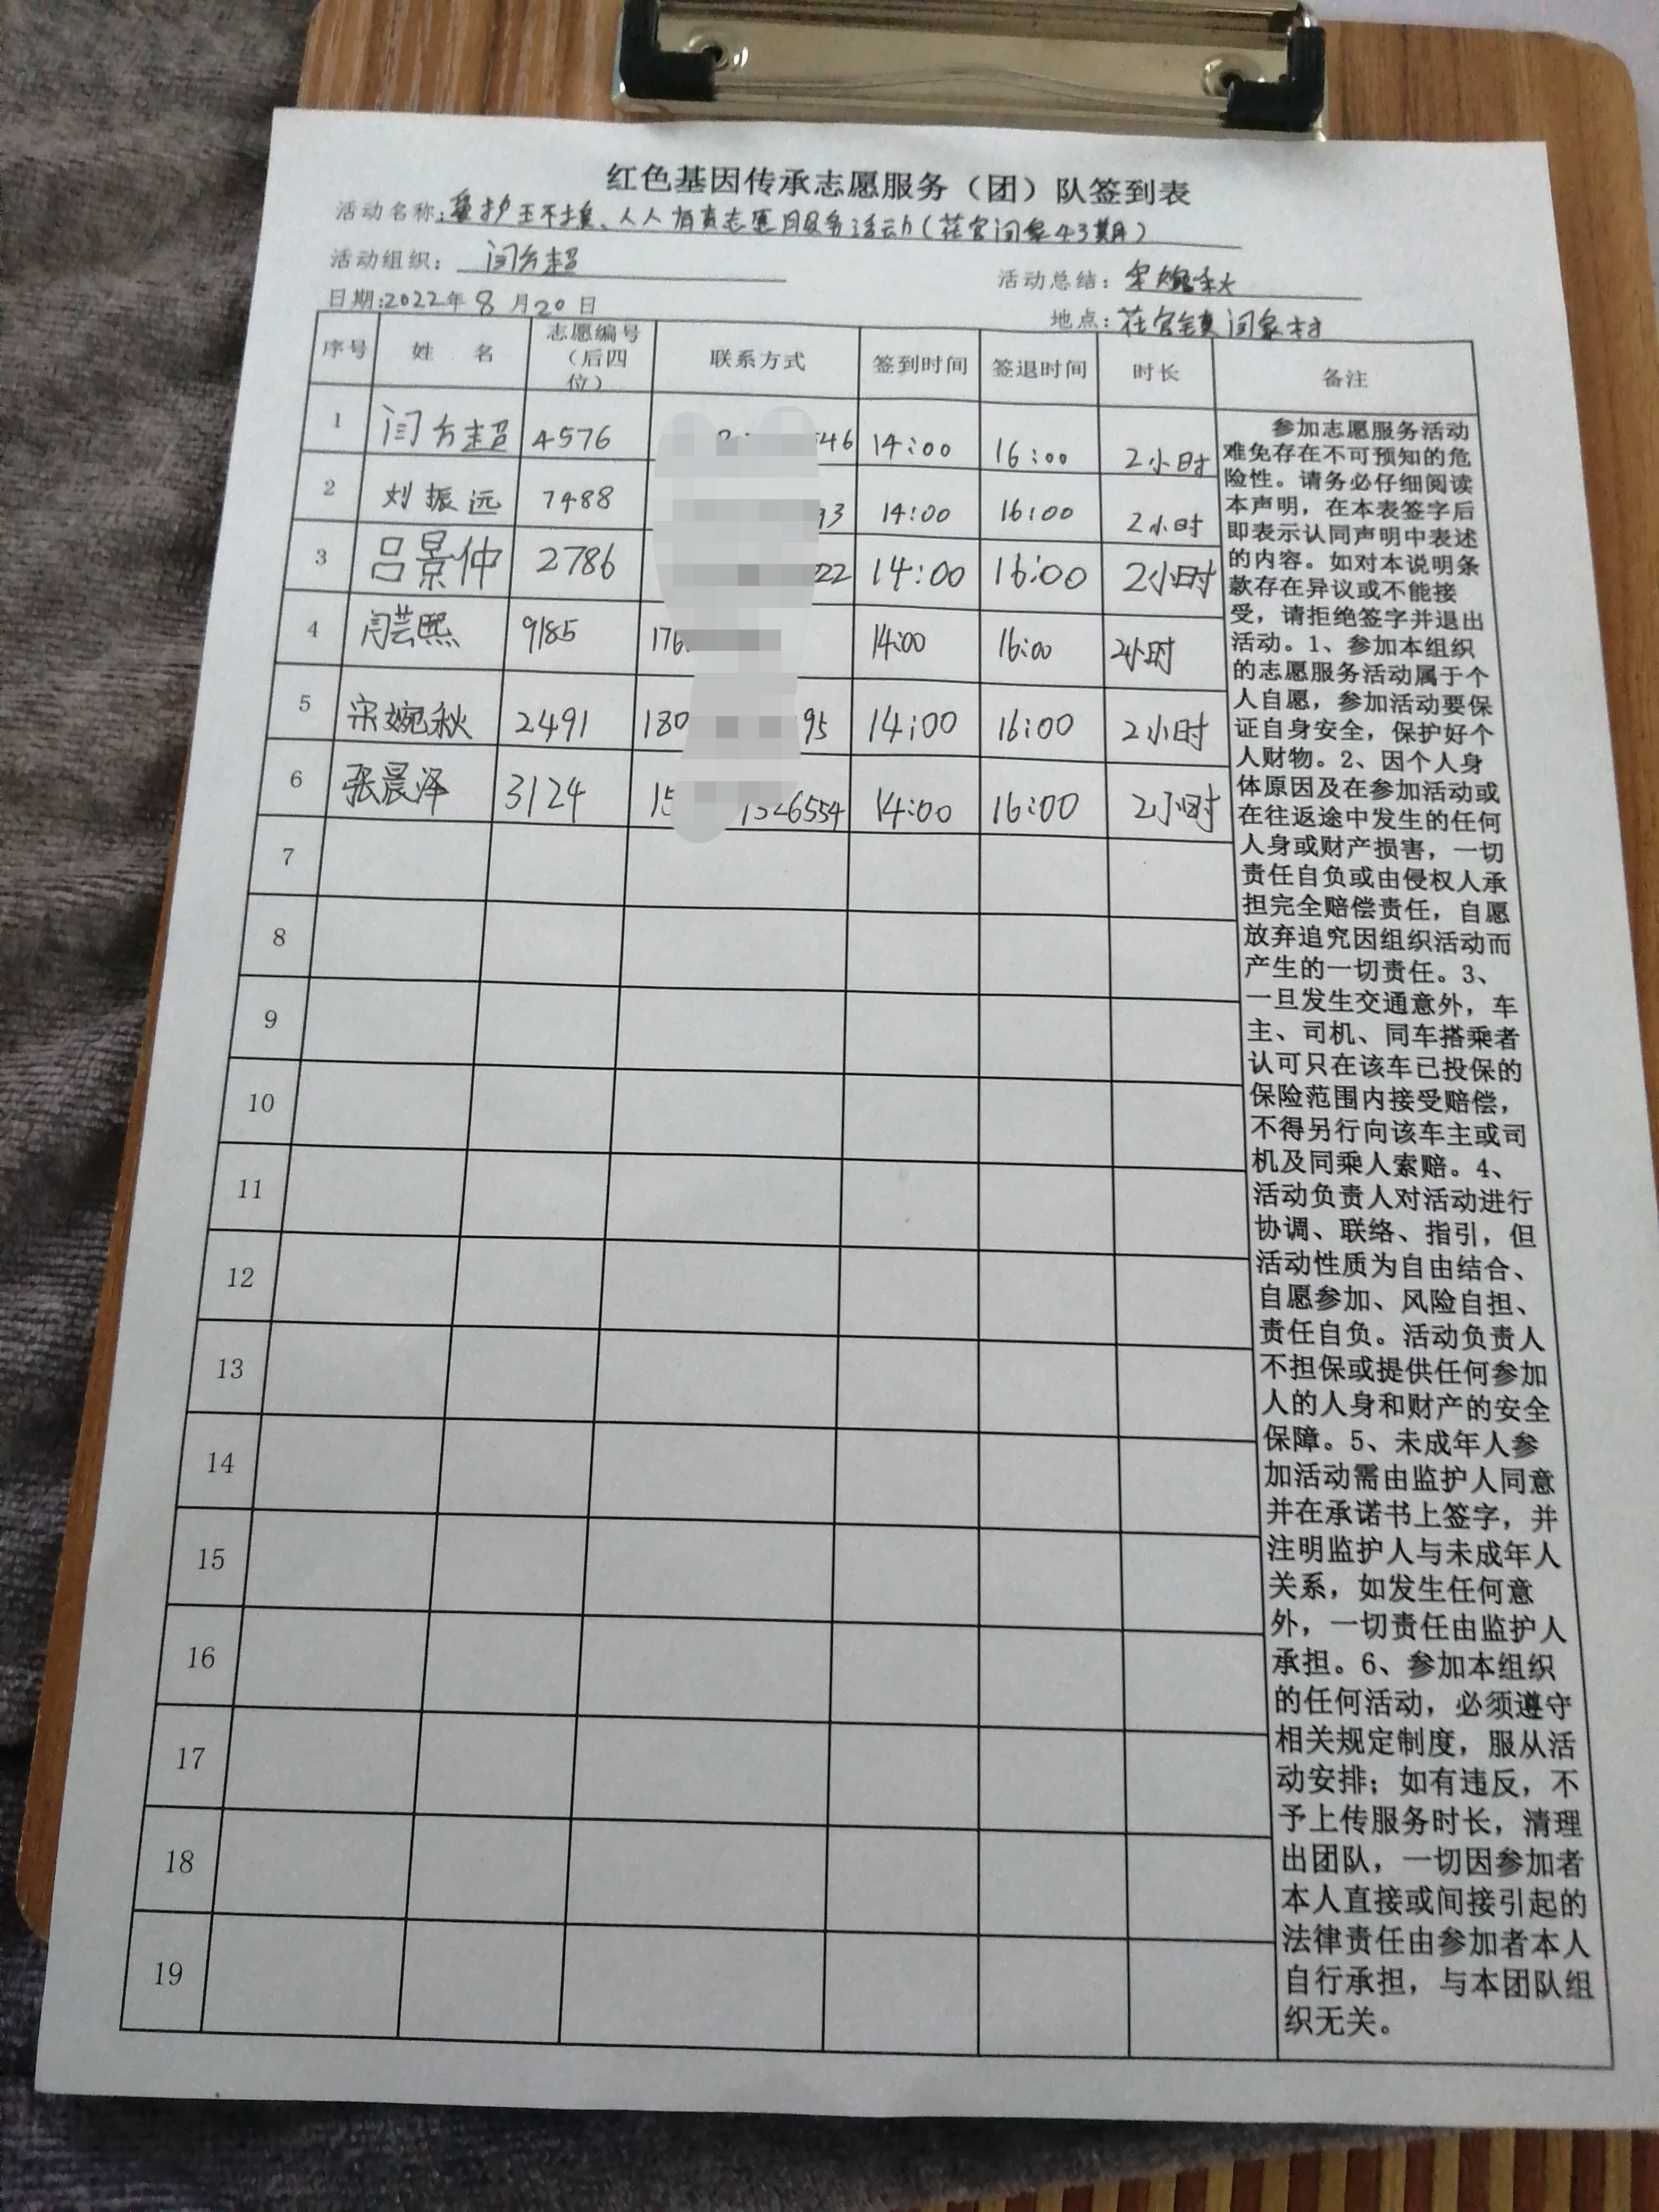 红色基因传承志愿服务（团）队签到表
活动名称:爱护环境、人人有责志愿服务活动(花官闫家43期)
活动组织: 闫方超
活动总结: 宋婉秋
日期:2022年8月20日
地点:花官镇闫家村
序号 姓 名 志愿编号（后四位） 联系方式 签到时间 签退时间 时长 备注
1 闫方超 4576 46 14:00 16:00 2小时
2 刘振远 7488 93 14:00 16:00 2小时
3 吕景仲 2786 22 14:00 16:00 2小时
4 闫芸熙 9185 176 14:00 16:00 2小时
5 宋婉秋 2491 180 95 14:00 16:00 2小时
6 张晨泽 3124 15 1526554 14:00 16:00 2小时
7
8
9
10
11
12
13
14
15
16
17
18
19
参加志愿服务活动
难免存在不可预知的危
险性。请务必仔细阅读
本声明，在本表签字后
即表示认同声明中表述
的内容。如对本说明条
款存在异议或不能接
受，请拒绝签字并退出
活动。1、参加本组织
的志愿服务活动属于个
人自愿，参加活动要保
证自身安全，保护好个
人财物。2、因个人身
体原因及在参加活动或
在往返途中发生的任何
人身或财产损害，一切
责任自负或由侵权人承
担完全赔偿责任，自愿
放弃追究因组织活动而
产生的一切责任。3、
一旦发生交通意外，车
主、司机、同车搭乘者
认可只在该车已投保的
保险范围内接受赔偿，
不得另行向该车主或司
机及同乘人索赔。4、
活动负责人对活动进行
协调、联络、指引，但
活动性质为自由结合、
自愿参加、风险自担、
责任自负。活动负责人
不担保或提供任何参加
人的人身和财产的安全
保障。5、未成年人参
加活动需由监护人同意
并在承诺书上签字，并
注明监护人与未成年人
关系，如发生任何意
外，一切责任由监护人
承担。6、参加本组织
的任何活动，必须遵守
相关规定制度，服从活
动安排；如有违反，不
予上传服务时长，清理
出团队，一切因参加者
本人直接或间接引起的
法律责任由参加者本人
自行承担，与本团队组
织无关。